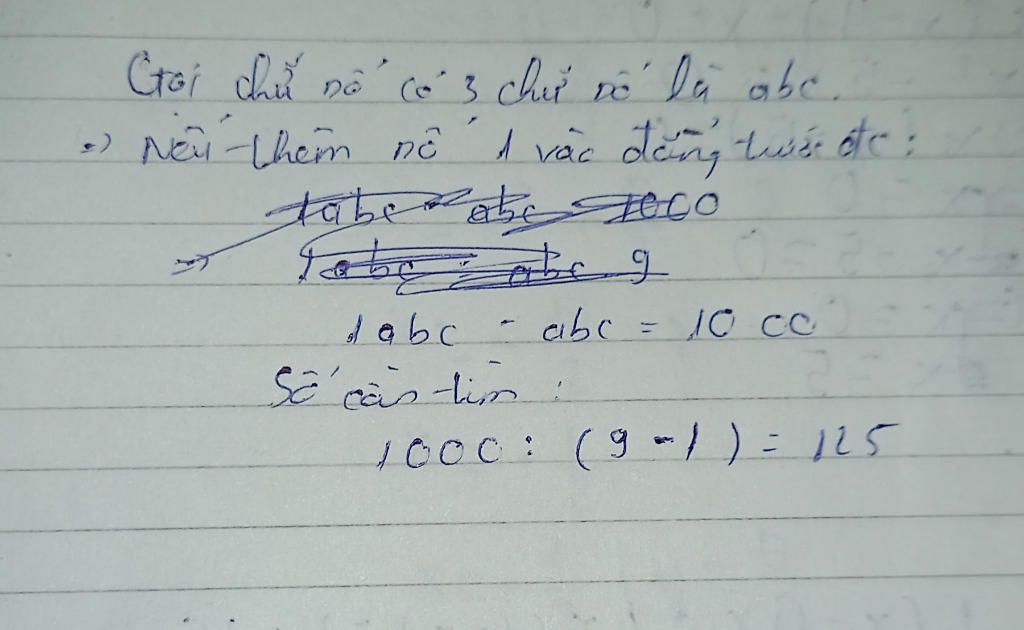 Gọi chữ số có 3 chữ số là abc.
=> Nếu thêm số 1 vào đằng trước đc:
1abc - abc = 1000
Số cần tìm:
1000 : (9 - 1) = 125